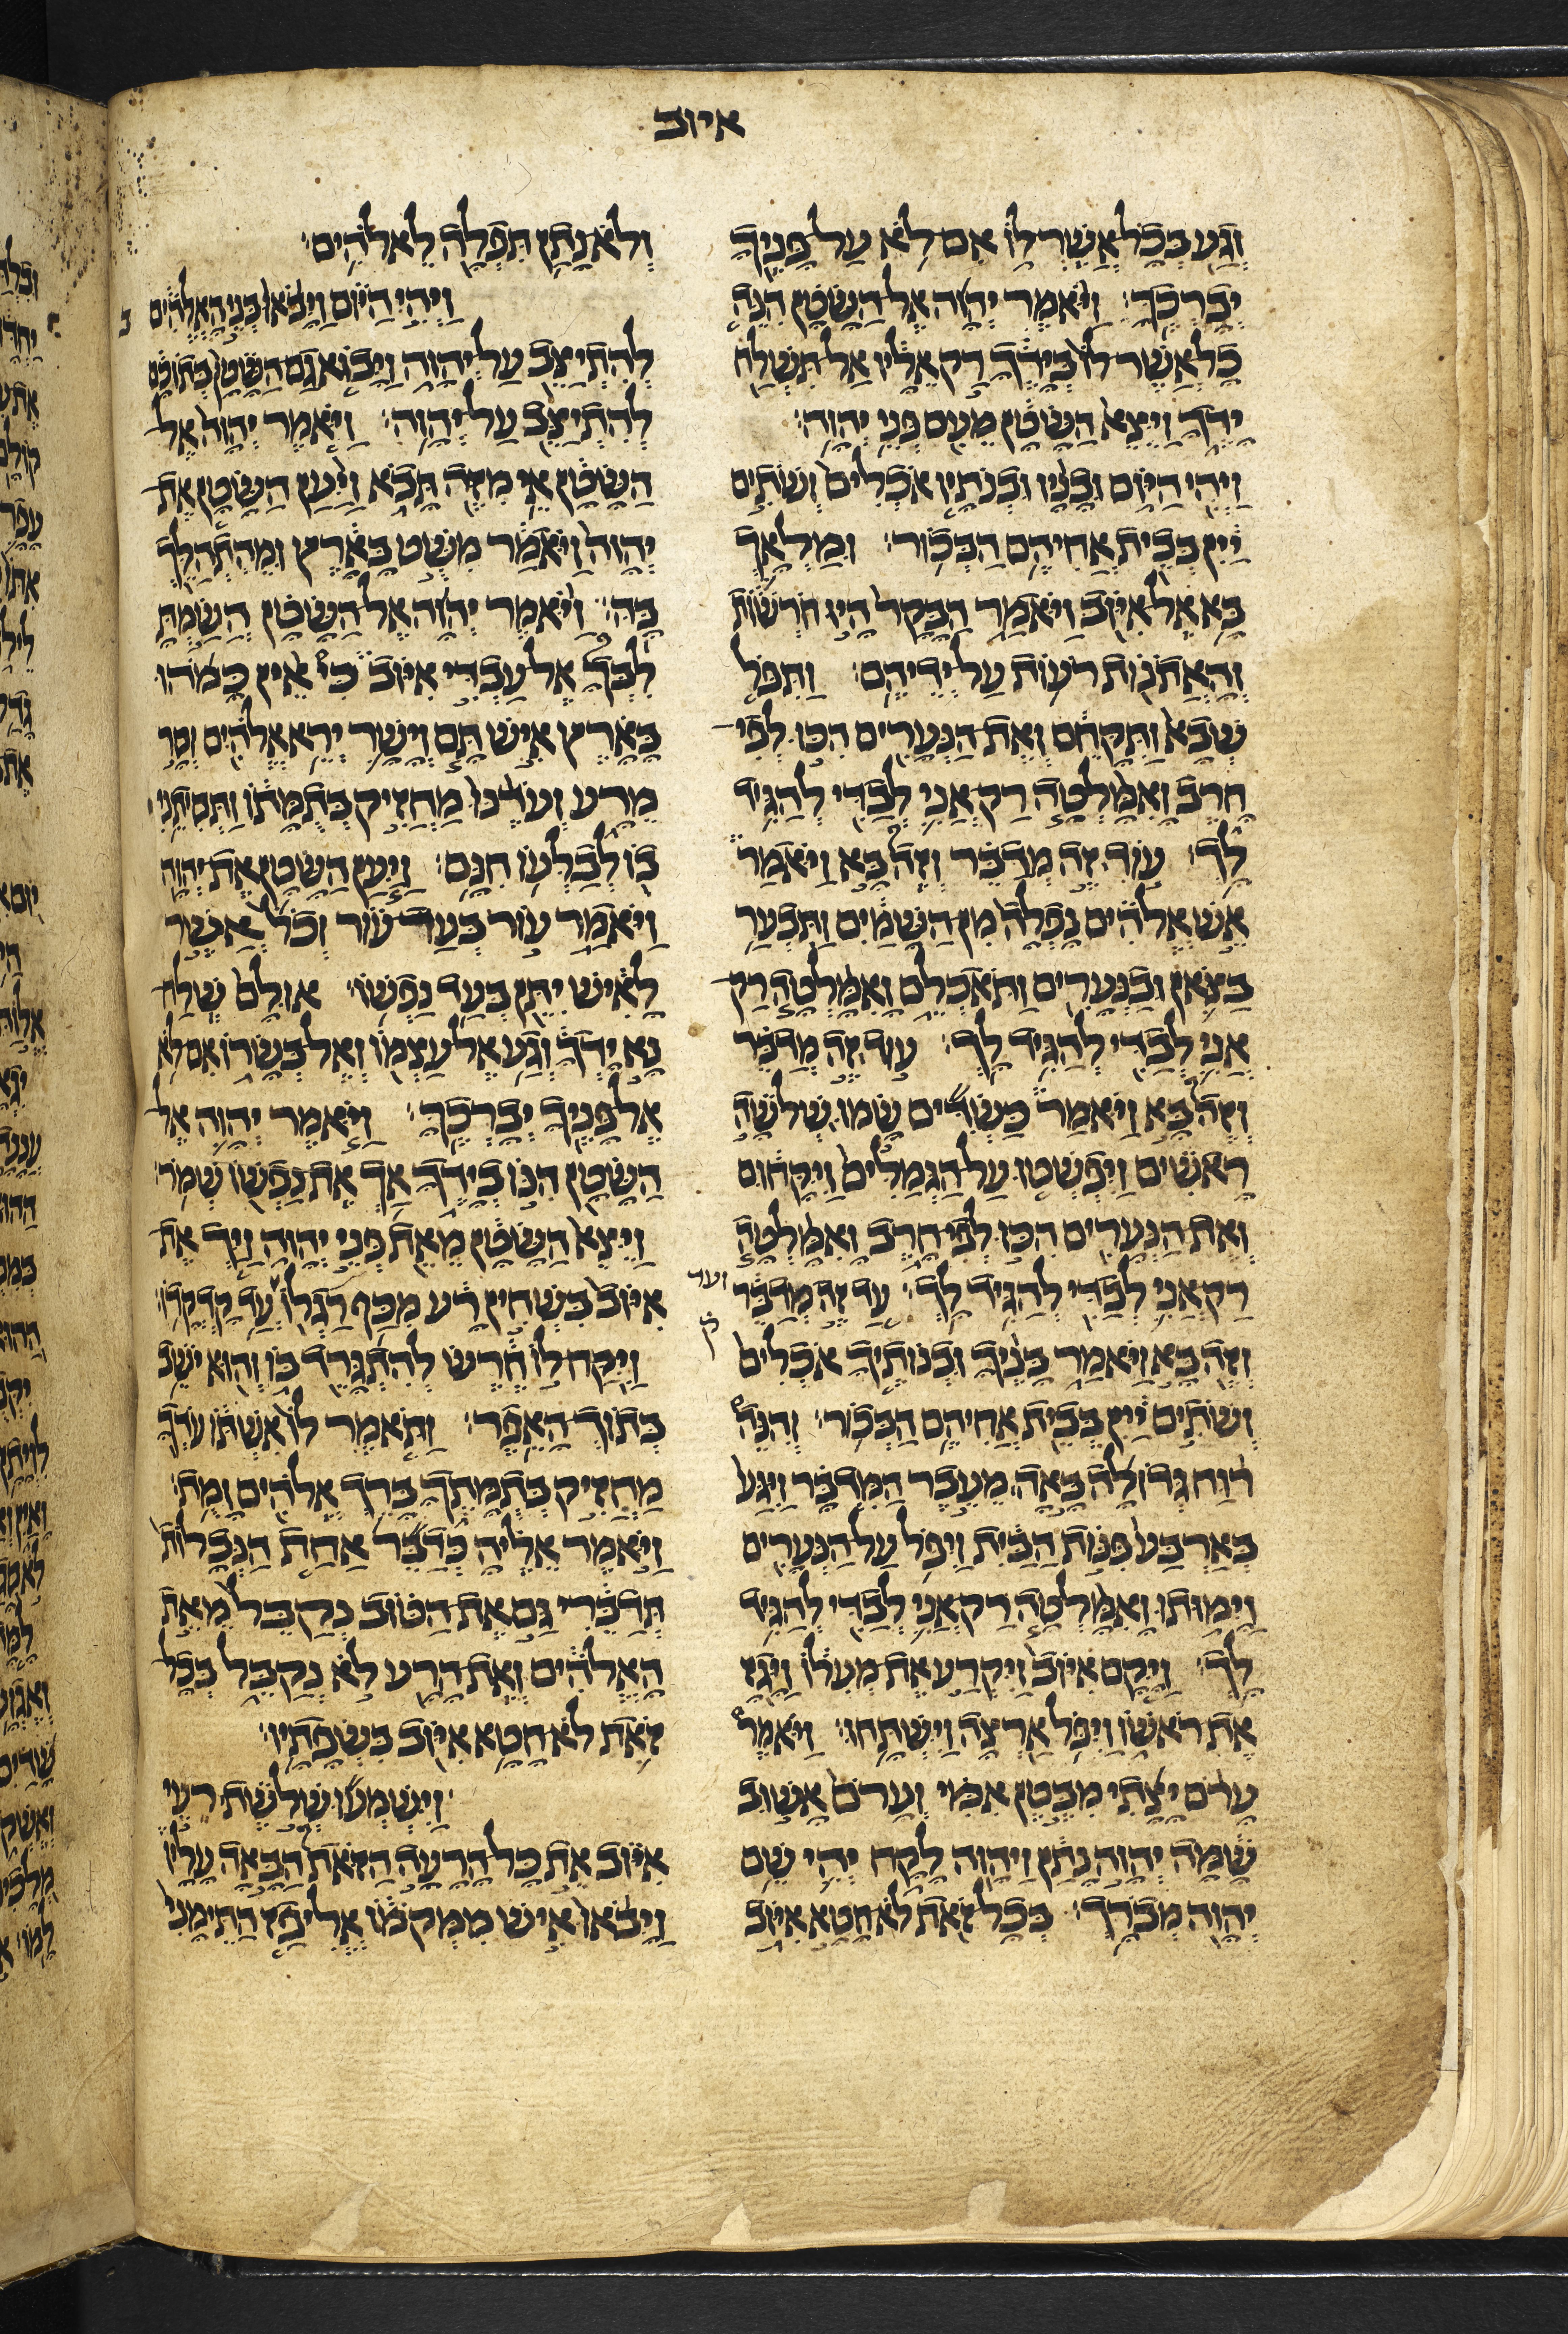 איוב
וְגַע בְּכָל אֲשֶׁר לוֹ אִם לֹא עַל פָּנֶיךָ
יְבָרְכֶךָּ׃ וַיֹּאמֶר יְהוָה אֶל הַשָּׂטָן הִנֵּה
כָל אֲשֶׁר לוֹ בְּיָדֶךָ רַק אֵלָיו אַל תִּשְׁלַח
יָדֶךָ וַיֵּצֵא הַשָּׂטָן מֵעִם פְּנֵי יְהוָה׃
וַיְהִי הַיּוֹם וּבָנָיו וּבְנֹתָיו אֹכְלִים וְשֹׁתִים
יַיִן בְּבֵית אֲחִיהֶם הַבְּכוֹר׃ וּמַלְאָךְ
בָּא אֶל אִיּוֹב וַיֹּאמַר הַבָּקָר הָיוּ חֹרְשׁוֹת
וְהָאֲתֹנוֹת רֹעוֹת עַל יְדֵיהֶם׃ וַתִּפֹּל
שְׁבָא וַתִּקָּחֵם וְאֶת הַנְּעָרִים הִכּוּ לְפִי
חָרֶב וָאִמָּלְטָה רַק אֲנִי לְבַדִּי לְהַגִּיד
לָךְ׃ עוֹד זֶה מְדַבֵּר וְזֶה בָּא וַיֹּאמַר
אֵשׁ אֱלֹהִים נָפְלָה מִן הַשָּׁמַיִם וַתִּבְעַר
בַּצֹּאן וּבַנְּעָרִים וַתֹּאכְלֵם וָאִמָּלְטָה רַק
אֲנִי לְבַדִּי לְהַגִּיד לָךְ׃ עוֹד זֶה מְדַבֵּר
וְזֶה בָּא וַיֹּאמַר כַּשְׂדִּים שָׂמוּ שְׁלֹשָׁה
רָאשִׁים וַיִּפְשְׁטוּ עַל הַגְּמַלִּים וַיִּקָּחוּם
וְאֶת הַנְּעָרִים הִכּוּ לְפִי חָרֶב וָאִמָּלְטָה
רַק אֲנִי לְבַדִּי לְהַגִּיד לָךְ׃ עַד זֶה מְדַבֵּר
וְזֶה בָּא וַיֹּאמַר בָּנֶיךָ וּבְנוֹתֶיךָ אֹכְלִים
וְשֹׁתִים יַיִן בְּבֵית אֲחִיהֶם הַבְּכוֹר׃ וְהִנֵּה
רוּחַ גְּדוֹלָה בָּאָה מֵעֵבֶר הַמִּדְבָּר וַיִּגַּע
בְּאַרְבַּע פִּנּוֹת הַבַּיִת וַיִּפֹּל עַל הַנְּעָרִים
וַיָּמוּתוּ וָאִמָּלְטָה רַק אֲנִי לְבַדִּי לְהַגִּיד
לָךְ׃ וַיָּקָם אִיּוֹב וַיִּקְרַע אֶת מְעִלוֹ וַיָּגָז
אֶת רֹאשׁוֹ וַיִּפֹּל אַרְצָה וַיִּשְׁתָּחוּ׃ וַיֹּאמֶר
עָרֹם יָצָתִי מִבֶּטֶן אִמִּי וְעָרֹם אָשׁוּב
שָׁמָּה יְהוָה נָתַן וַיהוָה לָקָח יְהִי שֵׁם
יְהוָה מְבֹרָךְ׃ בְּכָל זֹאת לֹא חָטָא אִיּוֹב
ועד
ק
וְלֹא נָתַן תִּפְלָה לֵאלֹהִים׃
ב וַיְהִי הַיּוֹם וַיָּבֹאוּ בְּנֵי הָאֱלֹהִים
לְהִתְיַצֵּב עַל יְהוָה וַיָּבוֹא גַם הַשָּׂטָן בְּתוֹכָם
לְהִתְיַצֵּב עַל יְהוָה׃ וַיֹּאמֶר יְהוָה אֶל
הַשָּׂטָן אֵי מִזֶּה תָּבֹא וַיַּעַן הַשָּׂטָן אֶת
יְהוָה וַיֹּאמַר מִשֻּׁט בָּאָרֶץ וּמֵהִתְהַלֵּךְ
בָּהּ׃ וַיֹּאמֶר יְהוָה אֶל הַשָּׂטָן הֲשַׂמְתָּ
לִבְּךָ אֶל עַבְדִּי אִיּוֹב כִּי אֵין כָּמֹהוּ
בָּאָרֶץ אִישׁ תָּם וְיָשָׁר יְרֵא אֱלֹהִים וְסָר
מֵרָע וְעֹדֶנּוּ מַחֲזִיק בְּתֻמָּתוֹ וַתְּסִיתֵנִי
בוֹ לְבַלְּעוֹ חִנָּם׃ וַיַּעַן הַשָּׂטָן אֶת יְהוָה
וַיֹּאמַר עוֹר בְּעַד עוֹר וְכֹל אֲשֶׁר
לָאִישׁ יִתֵּן בְּעַד נַפְשׁוֹ׃ אוּלָם שְׁלַח
נָא יָדְךָ וְגַע אֶל עַצְמוֹ וְאֶל בְּשָׂרוֹ אִם לֹא
אֶל פָּנֶיךָ יְבָרְכֶךָּ׃ וַיֹּאמֶר יְהוָה אֶל
הַשָּׂטָן הִנּוֹ בְיָדֶךָ אַךְ אֶת נַפְשׁוֹ שְׁמֹר׃
וַיֵּצֵא הַשָּׂטָן מֵאֵת פְּנֵי יְהוָה וַיַּךְ אֶת
אִיּוֹב בִּשְׁחִין רָע מִכַּף רַגְלוֹ עַד קָדְקֳדוֹ׃
וַיִּקַּח לוֹ חֶרֶשׂ לְהִתְגָּרֵד בּוֹ וְהוּא יֹשֵׁב
בְּתוֹךְ הָאֵפֶר׃ וַתֹּאמֶר לוֹ אִשְׁתּוֹ עֹדְךָ
מַחֲזִיק בְּתֻמָּתֶךָ בָּרֵךְ אֱלֹהִים וָמֻת׃
וַיֹּאמֶר אֵלֶיהָ כְּדַבֵּר אַחַת הַנְּבָלוֹת
תְּדַבֵּרִי גַּם אֶת הַטּוֹב נְקַבֵּל מֵאֵת
הָאֱלֹהִים וְאֶת הָרָע לֹא נְקַבֵּל בְּכָל
זֹאת לֹא חָטָא אִיּוֹב בִּשְׂפָתָיו׃
וַיִּשְׁמְעוּ שְׁלֹשֶׁת רֵעֵי
אִיּוֹב אֵת כָּל הָרָעָה הַזֹּאת הַבָּאָה עָלָיו
וַיָּבֹאוּ אִישׁ מִמְּקֹמוֹ אֱלִיפַז הַתֵּימָנִי